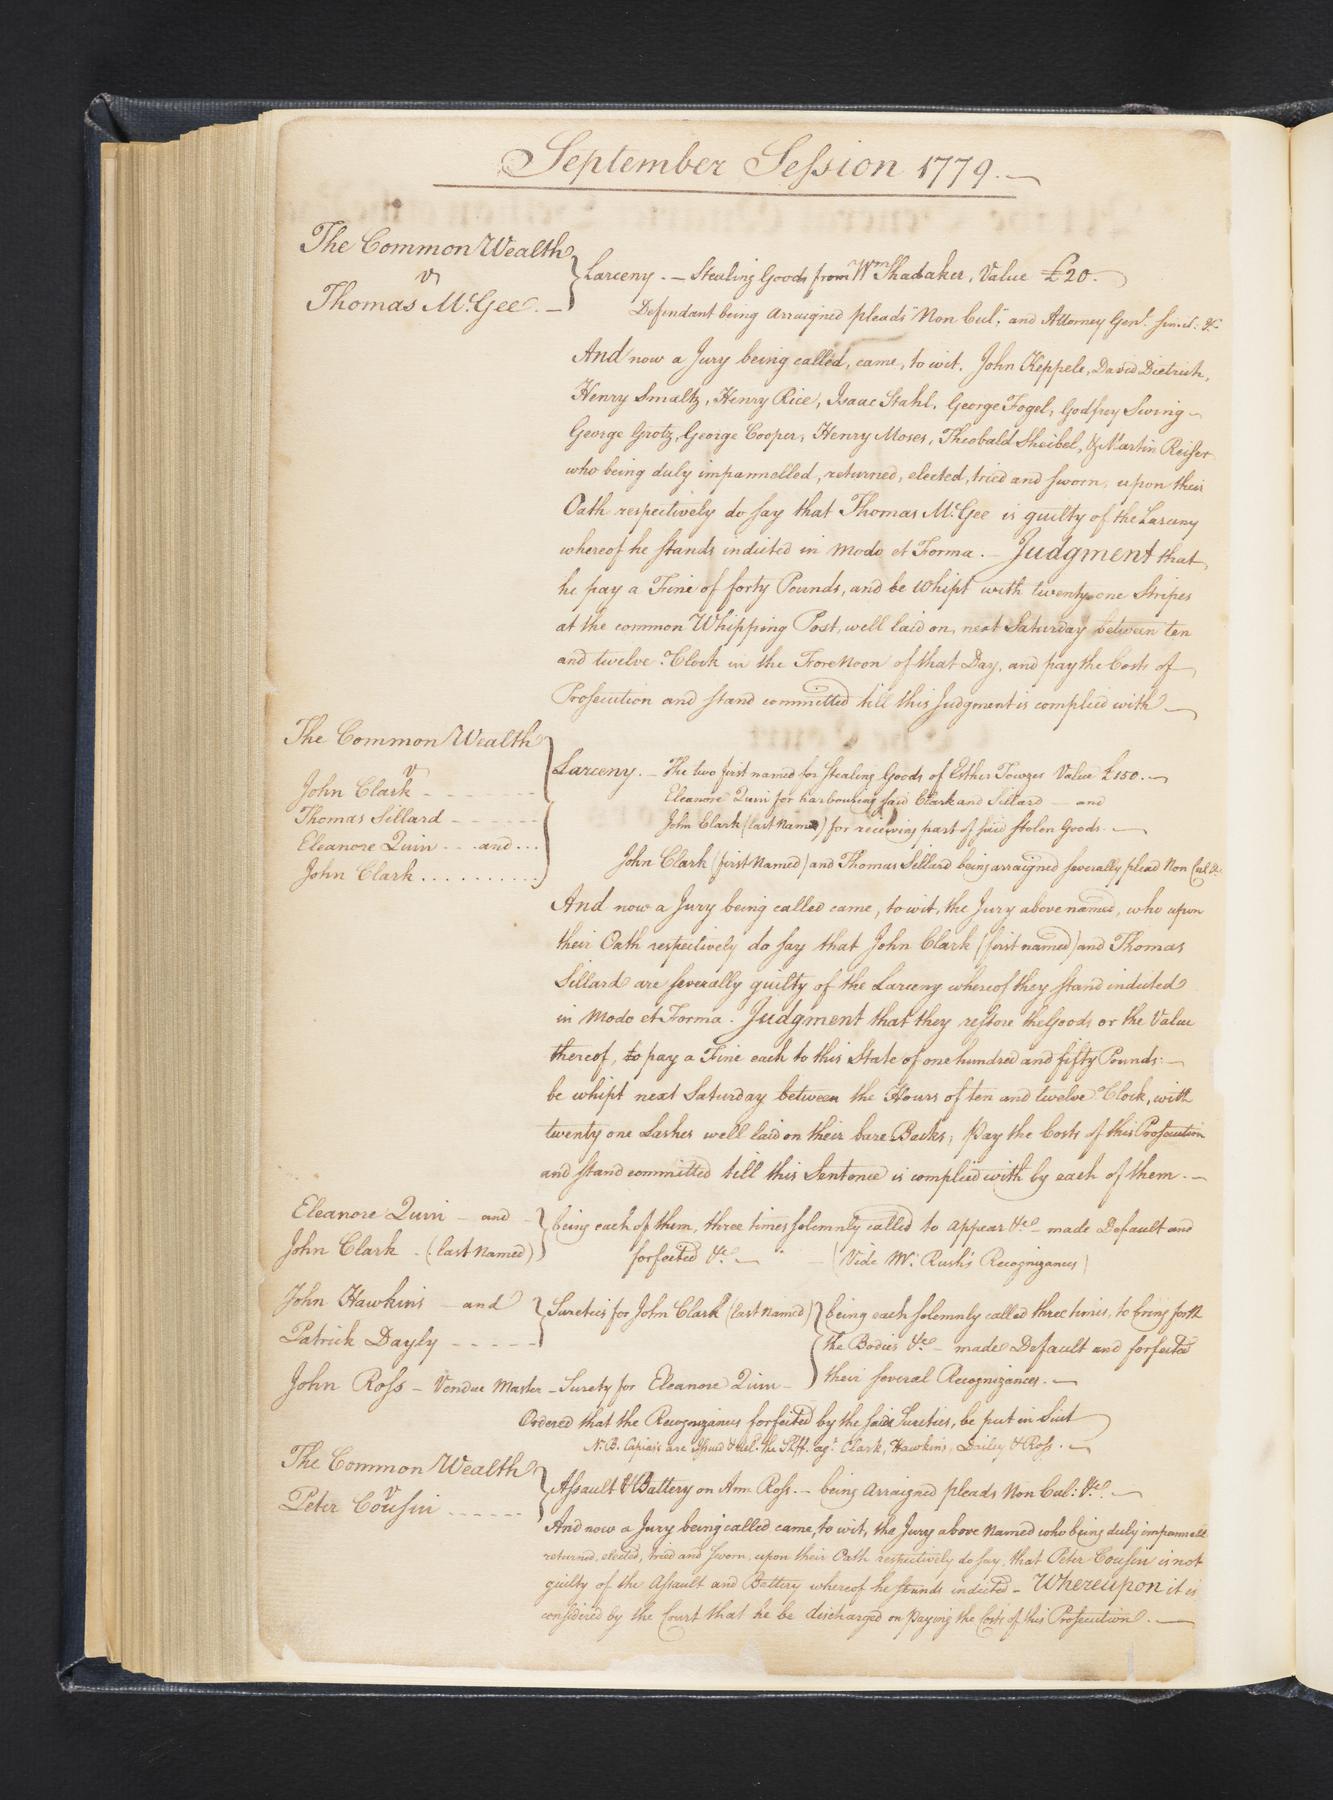 September Session 1779.
The Common Wealth
v
Thomas McGee.
Larceny. — Stealing Goods from Wm Shadaker, Value £20.
Defendant being arraigned pleads "Non Cul," and Attorney Genl. sim.d: &c
And now a Jury being called, came, to wit, John Keppele, David Dietrich,
Henry Smaltz, Henry Rice, Isaac Stahl, George Fogel, Godfrey Swing
George Grotz, George Cooper, Henry Moses, Theobald Sheibel, & Martin Reiser
who being duly impannelled, returned, elected, tried and sworn, upon their
Oath respectively do say that Thomas McGee is guilty of the Larceny
whereof he stands indicted in Modo et Forma. — Judgment that
he pay a Fine of forty Pounds, and be whipt with twenty one Stripes
at the common Whipping Post, well laid on, next Saturday between ten
and twelve o'Clock in the ForeNoon of that Day, and pay the Costs of
Prosecution and stand committed till this Judgment is complied with
The Common Wealth
v
John Clark
Thomas Sillard
Eleanore Quin - - and
John Clark
Larceny. — The two first named for Stealing Goods of Esther Towzes Value £150.
Eleanore Quin for harbouring said Clark and Sillard — and
John Clark (last Named) for receiving part of said stolen Goods.
John Clark (first Named) and Thomas Sillard being arraigned severally plead Non Cul &c
And now a Jury being called came, to wit, the Jury above named, who upon
their Oath respectively do say that John Clark (first named) and Thomas
Sillard are severally guilty of the Larceny whereof they stand indicted
in Modo et Forma. Judgment that they restore the Goods or the Value
thereof, to pay a Fine each to this State of one hundred and fifty Pounds:
be whipt next Saturday between the Hours of ten and twelve o'Clock, with
twenty one Lashes well laid on their bare Backs, Pay the Costs of this Prosecution
and stand committed till this Sentence is complied with by each of them.
Eleanore Quin — and
John Clark - (last Named)
being each of them, three times solemnly called to appear &c — made Default and
forfeited &c — (Vide Mr. Rush's Recognizances)
John Hawkins — and
Patrick Dayly
Sureties for John Clark (last Named)
John Ross — Vendue Master — Surety for Eleanore Quin
being each solemnly called three times, to bring forth
the Bodies &c — made Default and forfeited
their several Recognizances.
Ordered that the Recognizances forfeited by the said Sureties, be put in Suit
N.B. Capias's are issued & del. the Shff. agt. Clark, Hawkins, Dailey & Ross.
The Common Wealth
v
Peter Cousin
Assault & Battery on Ann Ross. — being arraigned pleads Non Cul: &c.
And now a Jury being called came, to wit, the Jury above Named who being duly impannell
returned, elected, tried and sworn, upon their Oath respectively do say, that Peter Cousin is not
guilty of the Assault and Battery whereof he stands indicted — Whereupon it is
considered by the Court that he be discharged on paying the Costs of this Prosecution.